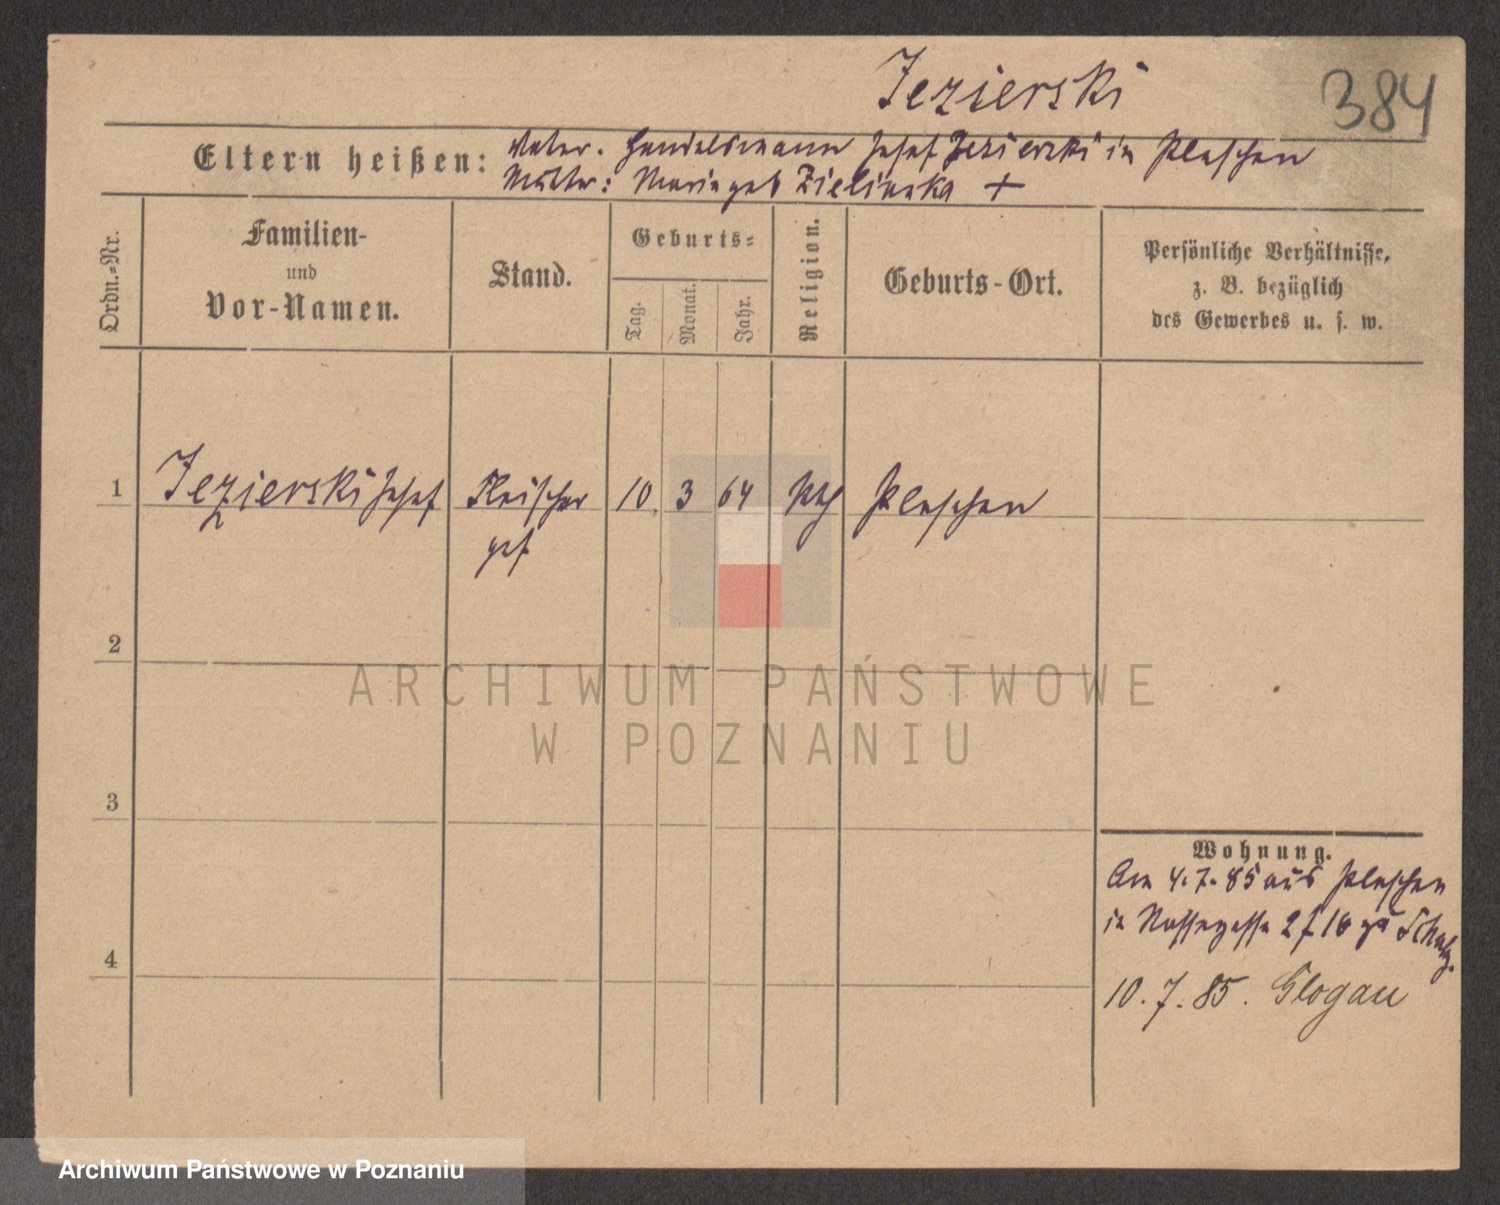 Jezierski
384
Eltern heißen:
Vater. Handelsmann Josef Jezierski in Pleschen
Mutter: Marie geb Zielinska +
Ordn.-Nr.
Familien-
und
Vor-Namen.
Stand.
Geburts-
Tag.
Monat.
Jahr.
Religion.
Geburts-Ort.
Persönliche Verhältnisse,
z. B. bezüglich
des Gewerbes u. s. w.
1 Jezierski Josef Fleischer 10. 3 64 kth Pleschen
ges
2
ARCHIWUM PAŃSTWOWE
W POZNANIU
3
Wohnung.
Am 4.7.85 aus Pleschen
in Nassegasse 2 f 16 zu Schulz.
4
10.7.85. Glogau
Archiwum Państwowe w Poznaniu